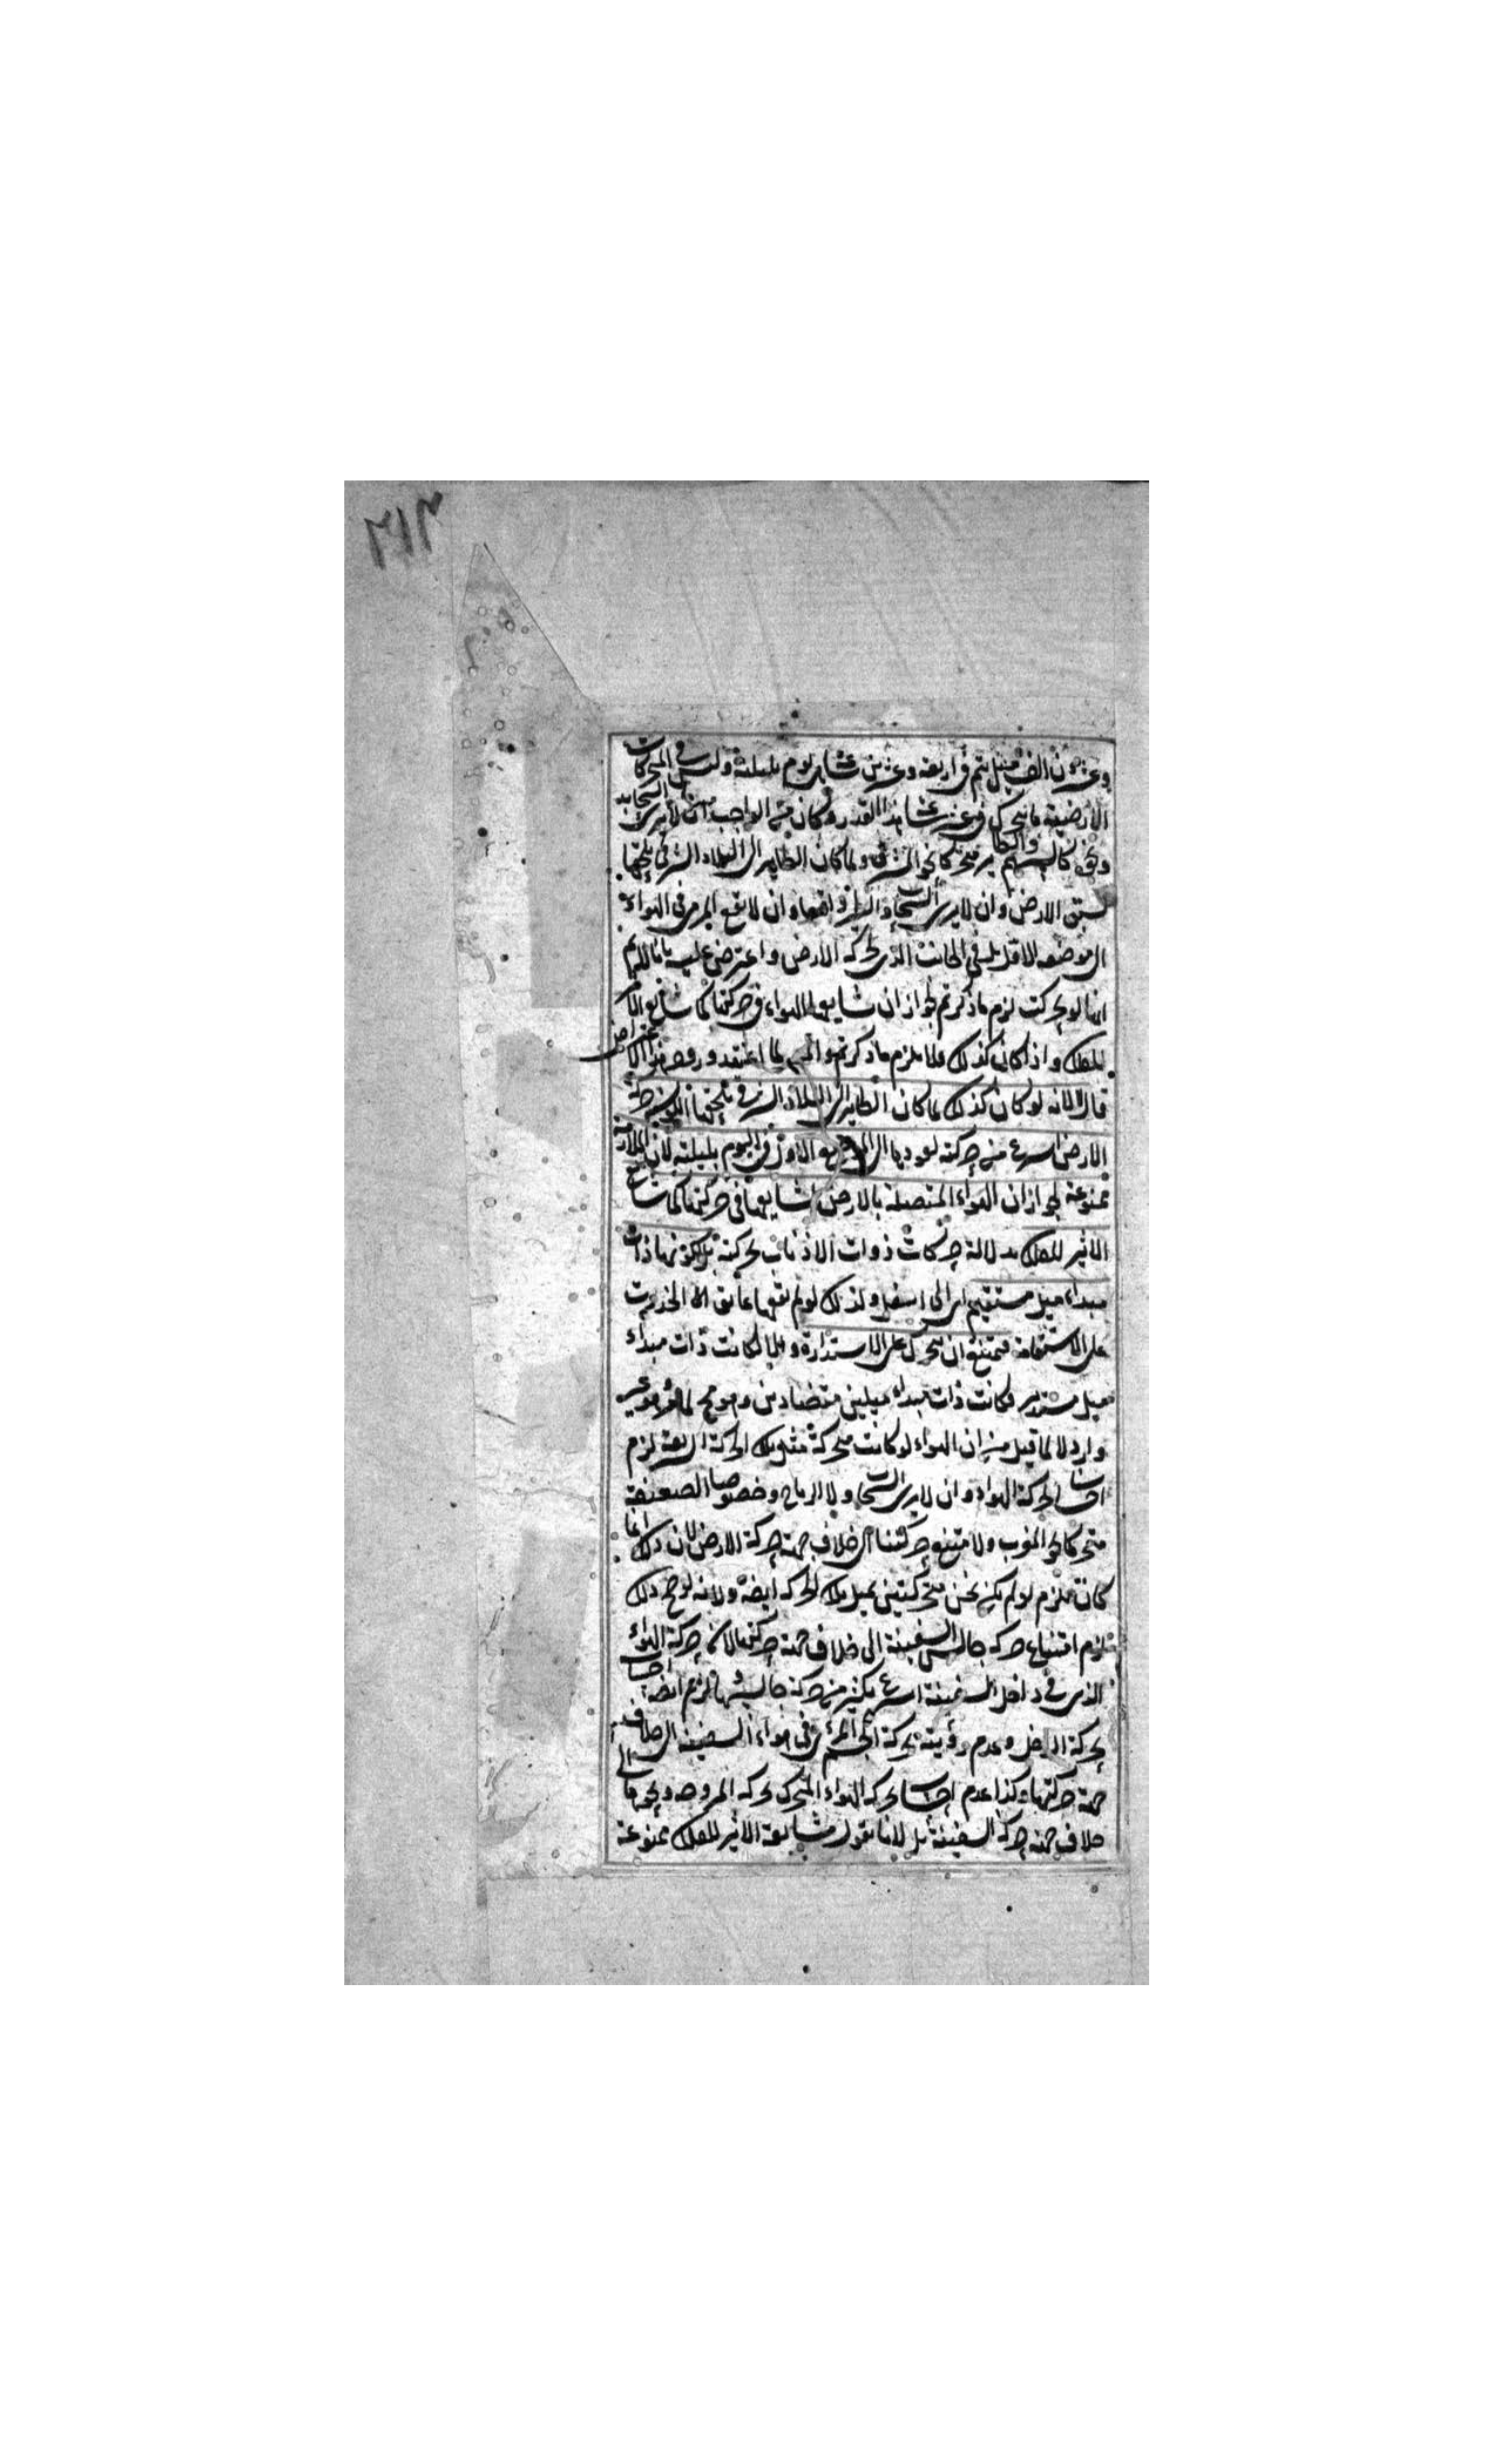 ٣١٣
وعشرون الف ميل يتم في اربعة وعشرين ساعة يوم بليلته وليس في المتحركات
الارضية ما يتحرك في عشر ساعة هذا القدر وكان من الواجب ان لا يرى السحاب
ونحوه كالسهم والطائر متحركا نحو المشرق ولما كان الطائر الى البلاد الشرقي يلحقها
لسبق الارض وان لا يرى السحاب والطير واقفا وان لا يقع المرمى في الهواء
الى موضعه الاول بل في الجانب الذي لحركة الارض واعترض عليه بانا لانم
انها لو تحركت لزم ما ذكرتم لجواز ان يشايعها الهواء في حركتها كما شايع الاثير
للفلك واذا كان كذلك فلا يلزم ما ذكرتم
قال لا لانه لو كان كذلك لما كان الطائر الى البلاد الشرقي يلحقها لكون حركة
الارض اسرع من حركته لعودها الى الموضع الاول في اليوم بليلته لان الملازمة
ممنوعة لجواز ان الهواء المتصلة بالارض يشايعها في حركتها كما يشايع
الاثير للفلك بدلالة حركات ذوات الاذناب بحركته بل لكونها ذات
مبداء ميل مستقيم اي الى اسفل ولذلك لو لم يعقها عائق الا انحدرت
على الاستقامة فيمتنع ان يتحرك على الاستدارة والا لكانت ذات مبداء
ميل مستدير فكانت ذات مبداء ميلين متضادين وهو مح لما مر وهو غير
وارد لا لما قيل من ان الهواء لو كانت متحركة مثل تلك الحركة السريعة لزم
احساسنا لحركة الهواء وان لا يرى السحاب ولا الرياح وخصوصا الضعيفة
متحركا نحو المغرب ولامتنع حركتنا الى خلاف جهة حركة الارض لان ذلك انما
كان يلزم لو لم يكن نحن متحركين بمثل تلك الحركة ايضا ولانه لو صح ذلك
لزم امتناع حركة جالس السفينة الى خلاف جهة حركتها لان حركة الهواء
الذي في داخل السفينة اسرع بكثير من حركة جالسها ولزم ايضا احساس
بحركة الداخل وعدم رؤيته بحركة الجسم المرئي في هواء السفينة الى خلاف
جهة حركتها وكذا عدم احساس بحركة الهواء المتحرك بحركة المروحة ونحوها الى
خلاف جهة حركة السفينة بل لانا نقول مشايعة الاثير للفلك ممنوعة